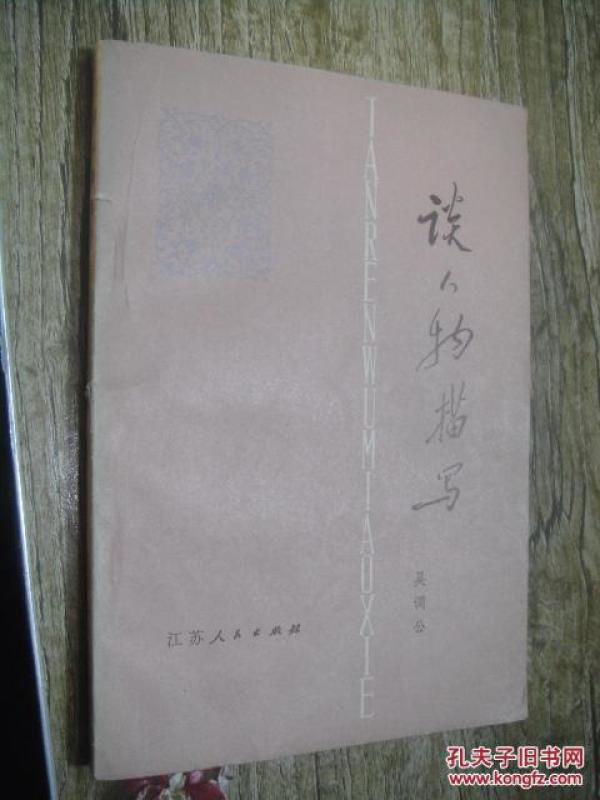 谈人物描写
吴调公
TANRENWUMIAOXIE
江苏人民出版社
孔夫子旧书网
www.kongfz.com